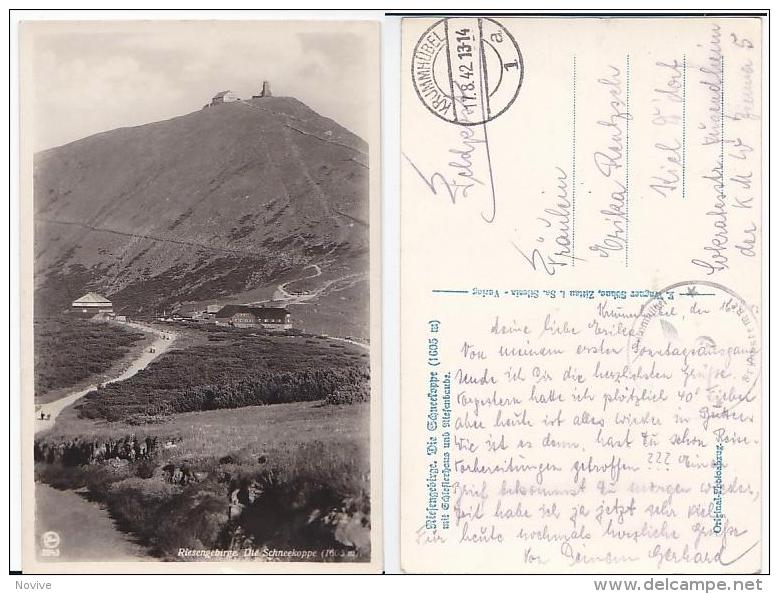 2043
Riesengebirge. Die Schneekoppe (1605 m)
KRUMMHÜBEL
17.8.42 13-14
a
1
Feldpost
Fräulein
Erika Rentzsch
Kiel
Sokratesstr. Jugendheim
der K M W Zimmer 5
F. Wagner Söhne, Zittau i. Sa. Stenis - Verlag
Riesengebirge. Die Schneekoppe (1605 m)
mit Schlesierhaus und Riesenbaude.
Original-Photoabzug
Krummhübel, den 16
Meine liebe Erika
Von meinem ersten Sonntagsausgang
sende ich Dir die herzlichsten Grüße.
Vorgestern hatte ich plötzlich 40° Fieber
aber heute ist alles wieder in Butter
Wie ist es denn, hast Du schon Reise-
vorbereitungen getroffen??? Einen
Brief bekommst Du morgen wieder,
Zeit habe ich ja jetzt sehr viel.
Für heute nochmals herzliche Grüße
Von Deinem Gerhard
Novive
http://www.delcampe.net